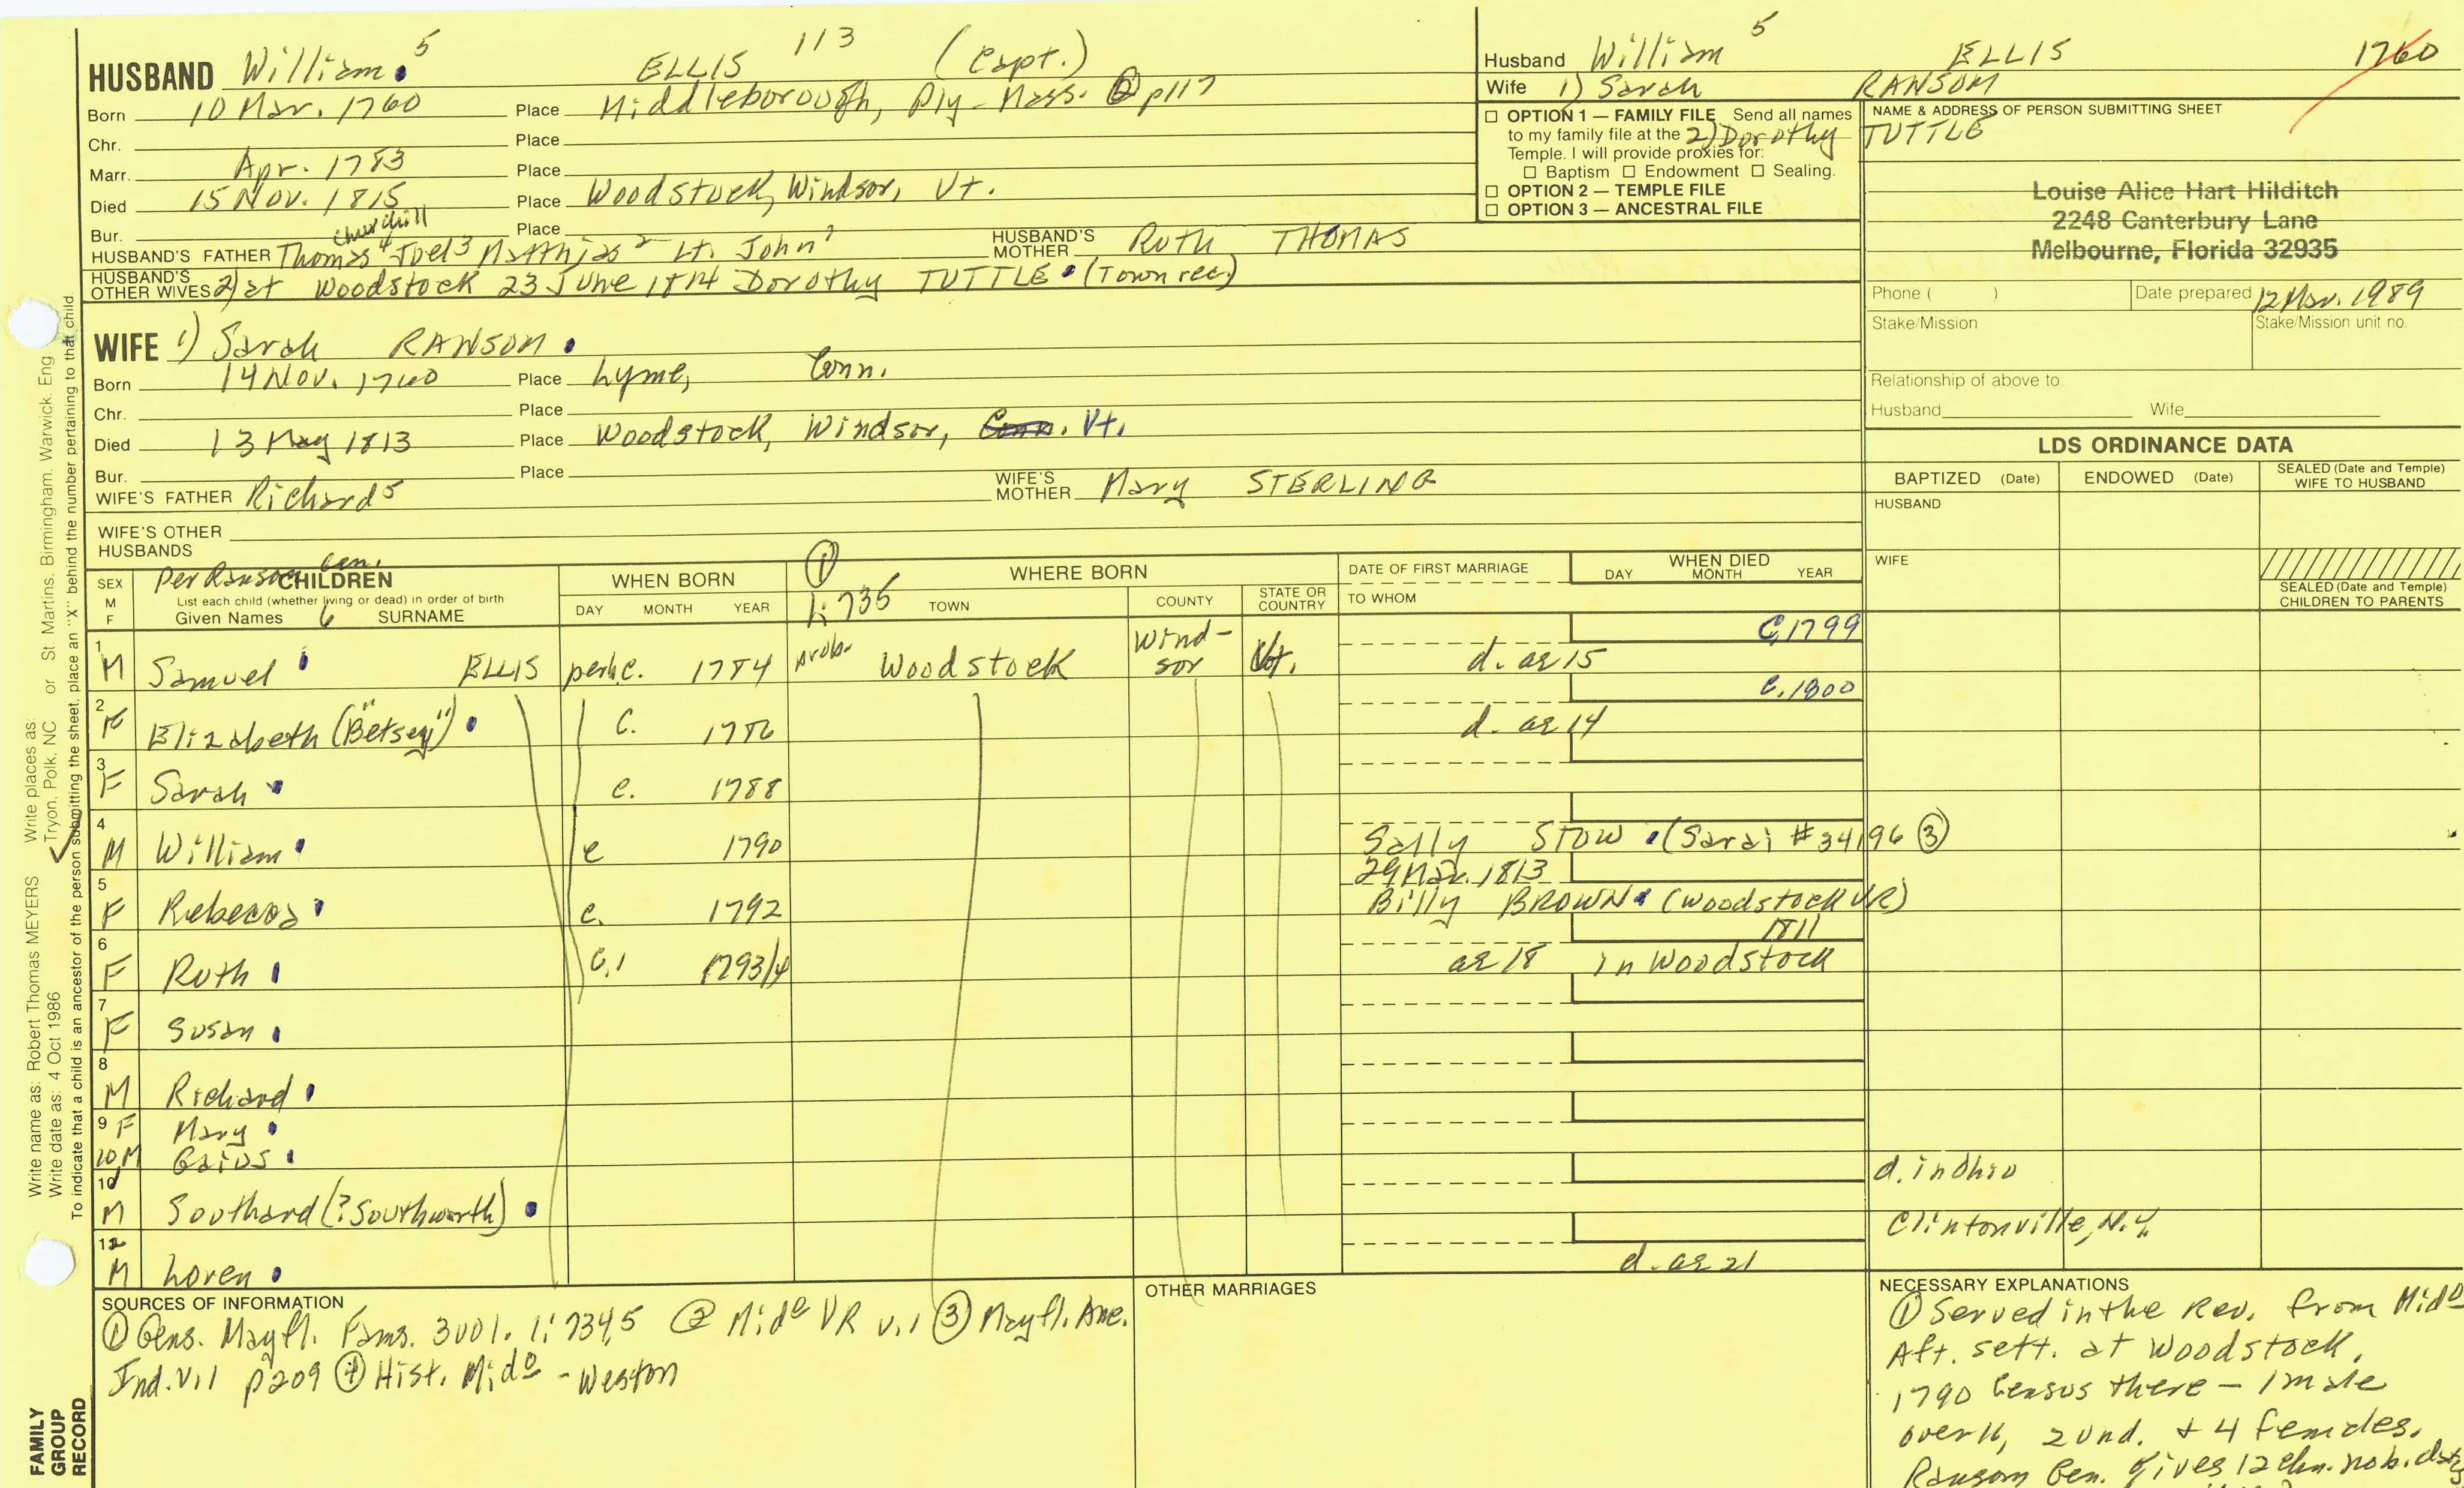 HUSBAND William 5 ELLIS 113 (Capt.)
Born 10 Mar. 1760 Place Middleborough, Ply-Mass. ② p117
Chr. Place
Marr. Apr. 1783 Place
Died 15 Nov. 1815 Place Woodstock, Windsor, Vt.
Bur. Place
Churchill
HUSBAND'S FATHER Thomas 4 Joel 3 Matthias 2 Lt. John 1 HUSBAND'S MOTHER Ruth THOMAS
HUSBAND'S OTHER WIVES 2) at Woodstock 23 June 1814 Dorothy TUTTLE (Town rec.)
WIFE 1) Sarah RANSOM
Born 14 Nov. 1760 Place Lyme, Conn.
Chr. Place
Died 13 May 1813 Place Woodstock, Windsor, Conn. Vt.
Bur. Place
WIFE'S FATHER Richard 5 WIFE'S MOTHER Mary STERLING
WIFE'S OTHER HUSBANDS
Husband William 5 ELLIS 1760
Wife 1) Sarah RANSOM
☐ OPTION 1 — FAMILY FILE Send all names
to my family file at the 2) Dorothy TUTTLE
Temple. I will provide proxies for:
☐ Baptism ☐ Endowment ☐ Sealing.
☐ OPTION 2 — TEMPLE FILE
☐ OPTION 3 — ANCESTRAL FILE
NAME & ADDRESS OF PERSON SUBMITTING SHEET
Louise Alice Hart Hilditch
2248 Canterbury Lane
Melbourne, Florida 32935
Phone ( ) Date prepared 12 Mar. 1989
Stake/Mission Stake/Mission unit no.
Relationship of above to
Husband Wife
LDS ORDINANCE DATA
BAPTIZED (Date) ENDOWED (Date) SEALED (Date and Temple) WIFE TO HUSBAND
HUSBAND
WIFE
SEALED (Date and Temple) CHILDREN TO PARENTS
SEX M F Per Ransom Gen. CHILDREN
List each child (whether living or dead) in order of birth
Given Names 6 SURNAME
WHEN BORN DAY MONTH YEAR
① 1:735 WHERE BORN TOWN COUNTY STATE OR COUNTRY
DATE OF FIRST MARRIAGE TO WHOM
WHEN DIED DAY MONTH YEAR
1 M Samuel ELLIS perh c. 1784 prob. Woodstock Windsor Vt. d. ae 15 C, 1799
2 F Elizabeth ("Betsey") c. 1786 d. ae 14 c. 1800
3 F Sarah c. 1788
4 M William c 1790 Sally STOW (Sarai #34196 ③
5 F Rebecca c. 1792 29 Mar. 1813 Billy BROWN (Woodstock VR)
6 F Ruth c. 1793/4 ae 18 in Woodstock 1811
7 F Susan
8 M Richard
9 F Mary
10 M Gaius
10 M Southard (?Southworth) d. in Ohio
12 M Loren d. ae 21 Clintonville, N.Y.
SOURCES OF INFORMATION
① Gens. Mayfl. Fams. 3 vol. 1:734,5 ② Mid o VR v.1 ③ Mayfl. Anc.
Ind. V.1 p209 ④ Hist. Mid o - Weston
OTHER MARRIAGES
NECESSARY EXPLANATIONS
① Served in the Rev. from Mid o
Aft. sett. at Woodstock.
1790 Census there — 1 male
over 16, 2 und. + 4 females.
Ransom Gen. gives 12 chn. no b. dates
Write name as: Robert Thomas MEYERS Write places as: Tryon, Polk, NC or St. Martins, Birmingham, Warwick, Eng
Write date as: 4 Oct 1986
To indicate that a child is an ancestor of the person submitting the sheet, place an "X" behind the number pertaining to that child
FAMILY
GROUP
RECORD